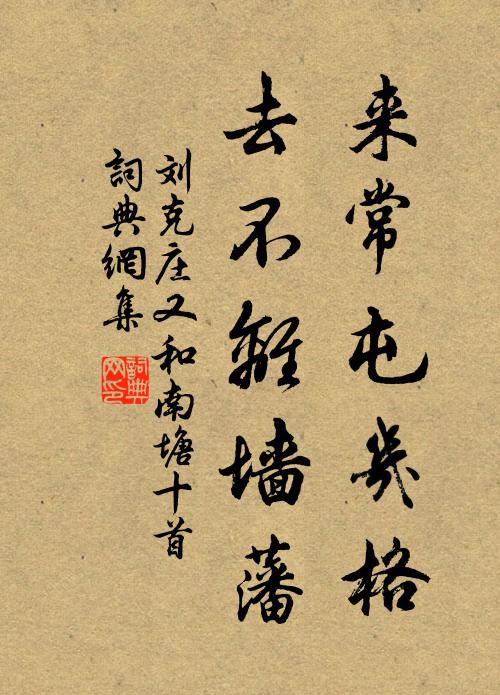 来常屯幾格
去不離墙藩
刘克庄又和南塘十首
詞典網集
詞典網印